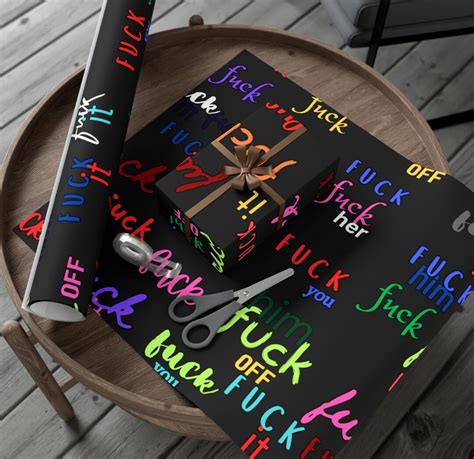 FUCK
fuck
it
FUCK
it
OFF
fuck
fuck
fuck
FUCK
OFF
fuck
her
it
FUCK
you
FUCK
him
fuck
fuck
him
fuck
OFF
fuck
you
FUCK
it
fu
FU